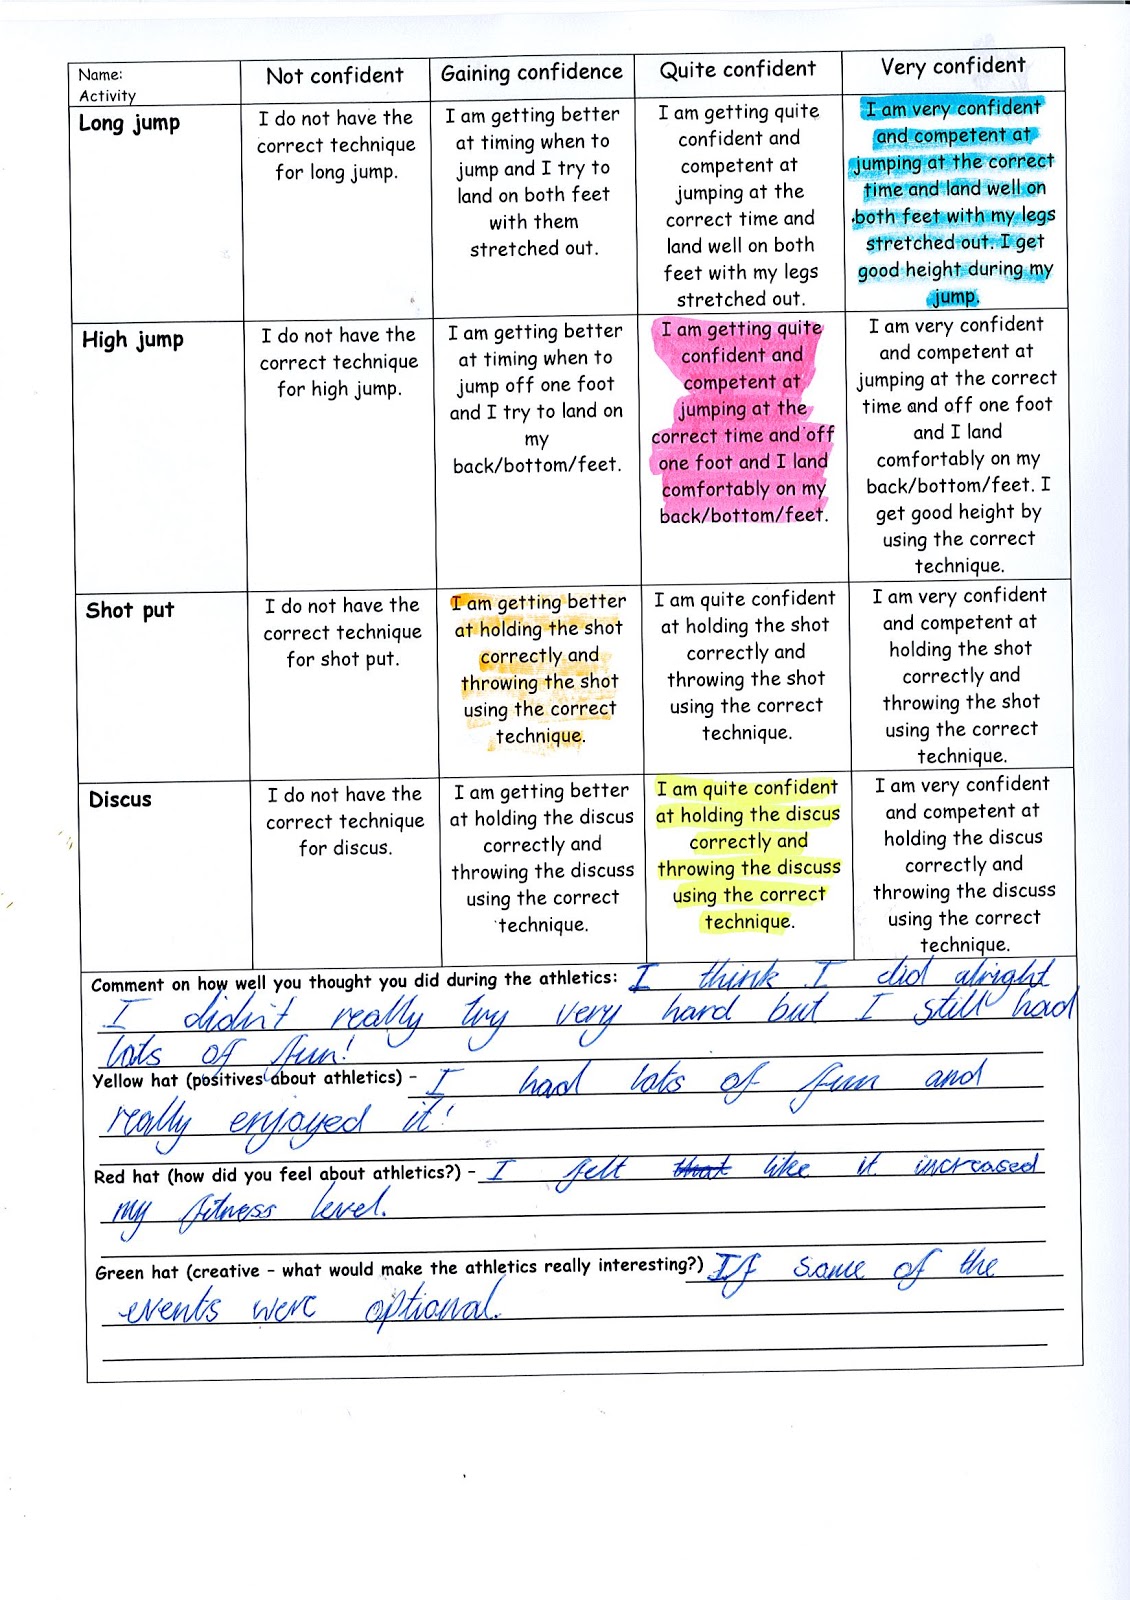 Name:
Activity
Not confident
Gaining confidence
Quite confident
Very confident
Long jump
I do not have the
correct technique
for long jump.
I am getting better
at timing when to
jump and I try to
land on both feet
with them
stretched out.
I am getting quite
confident and
competent at
jumping at the
correct time and
land well on both
feet with my legs
stretched out.
I am very confident
and competent at
jumping at the correct
time and land well on
both feet with my legs
stretched out. I get
good height during my
jump.
High jump
I do not have the
correct technique
for high jump.
I am getting better
at timing when to
jump off one foot
and I try to land on
my
back/bottom/feet.
I am getting quite
confident and
competent at
jumping at the
correct time and off
one foot and I land
comfortably on my
back/bottom/feet.
I am very confident
and competent at
jumping at the correct
time and off one foot
and I land
comfortably on my
back/bottom/feet. I
get good height by
using the correct
technique.
Shot put
I do not have the
correct technique
for shot put.
I am getting better
at holding the shot
correctly and
throwing the shot
using the correct
technique.
I am quite confident
at holding the shot
correctly and
throwing the shot
using the correct
technique.
I am very confident
and competent at
holding the shot
correctly and
throwing the shot
using the correct
technique.
Discus
I do not have the
correct technique
for discus.
I am getting better
at holding the discus
correctly and
throwing the discuss
using the correct
technique.
I am quite confident
at holding the discus
correctly and
throwing the discuss
using the correct
technique.
I am very confident
and competent at
holding the discus
correctly and
throwing the discuss
using the correct
technique.
Comment on how well you thought you did during the athletics: I think I did alright
I didn't really try very hard but I still had
lots of fun!
Yellow hat (positives about athletics) - I had lots of fun and
really enjoyed it!
Red hat (how did you feel about athletics?) - I felt that like it increased
my fitness level.
Green hat (creative - what would make the athletics really interesting?) If some of the
events were optional.